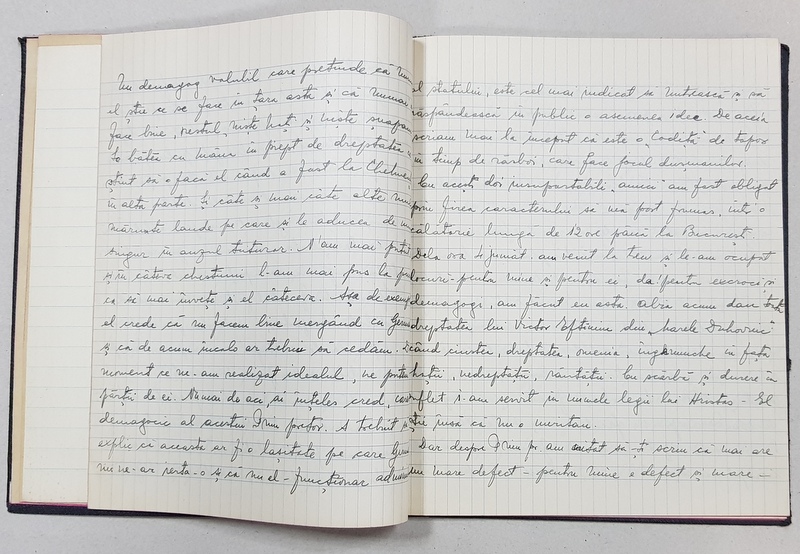 Un demagog volubil care pretinde că num
el știe ce se face în țara asta și că numai
face bine, restul niște hoți și niște
to bătea cu mâna în piept de dreptatea
știut să o facă el când a fost la
în altă parte. Și câte și mai câte alte
mărunte laude pe care și le aducea de un
singur în auzul tuturor. N'am mai putut
și în câteva chestiuni l-am mai pus la pu
ca să mai învețe și el câteceva. Așa de exemp
el crede că nu facem bine mergând cu Germ
și că de acum încolo ar trebui să cedam,
moment ce ne-am realizat idealul, ne
părții de ei. Numai de aci, ai înțeles cred,
demagogic al acestui Domn pretor. A trebuit s
explic că aceasta ar fi o lașitate pe care Germ
nu ne-ar ierta-o și că nu el - funcționar admini
al statului, este cel mai indicat să nutrească și să
răspândească în public o asemenea idee. De aceia
scriam mai la început că este o "Codiță" de topor
în timp de război, care face jocul dușmanilor.
Cu acești doi insuportabili "amici" am fost obligat
prin firea caracterului să mă port frumos, într'o
călătorie lungă de 12 ore până la București.
Dela ora 4 jumăt. am venit la tren și le-am ocupat
locuri - pentru mine și pentru ei, da, pentru escroci și
demagogi, am făcut eu asta. Abia acum dau toată
dreptatea lui Victor Eftimiu din "Marele Duhovnic"
când cinstea, dreptatea, omenia, îngenunche în fața
hoției, nedreptății, răutății. Cu scârbă și durere în
suflet i-am servit în numele legii lui Hristos - El
știe însă că nu o meritau.
Dar despre Domnu pr. am uitat să-ți scriu că mai are
un mare defect - pentru mine e defect și mare -